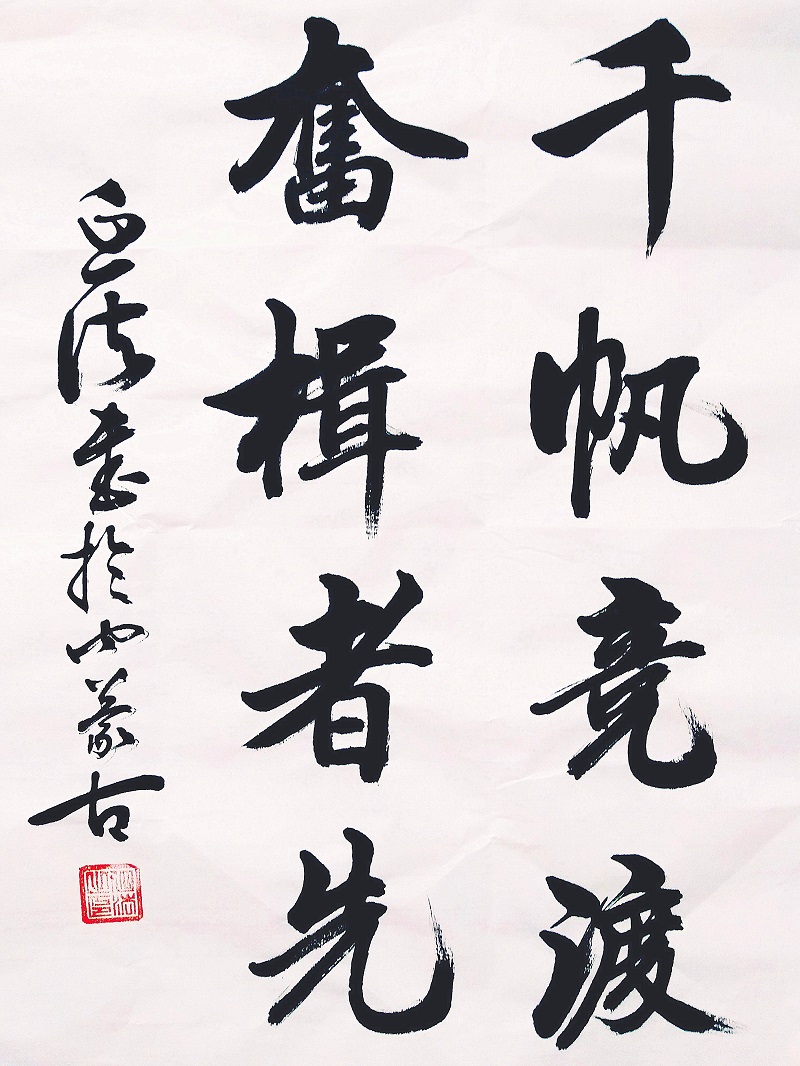 千帆竞渡
奋楫者先
书於内蒙古